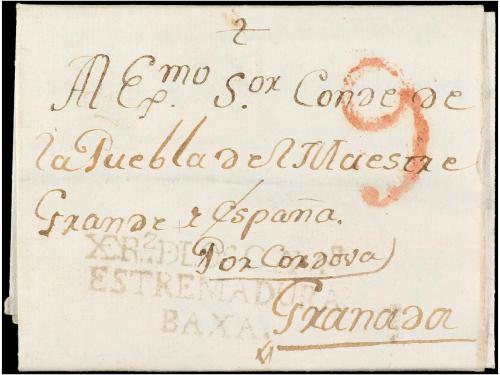 2
Al Ex.mo S.or Conde de
la Puebla de el Maestre
Grande de España.
9
Por Cordova
ESTREMADURA
BAXA.
Granada